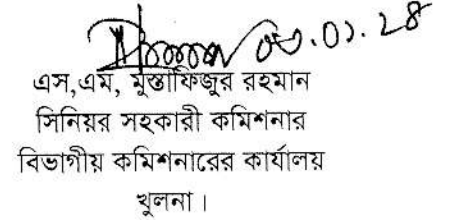 এস,এম, মুস্তাফিজুর রহমান
সিনিয়র সহকারী কমিশনার
বিভাগীয় কমিশনারের কার্যালয়
খুলনা।